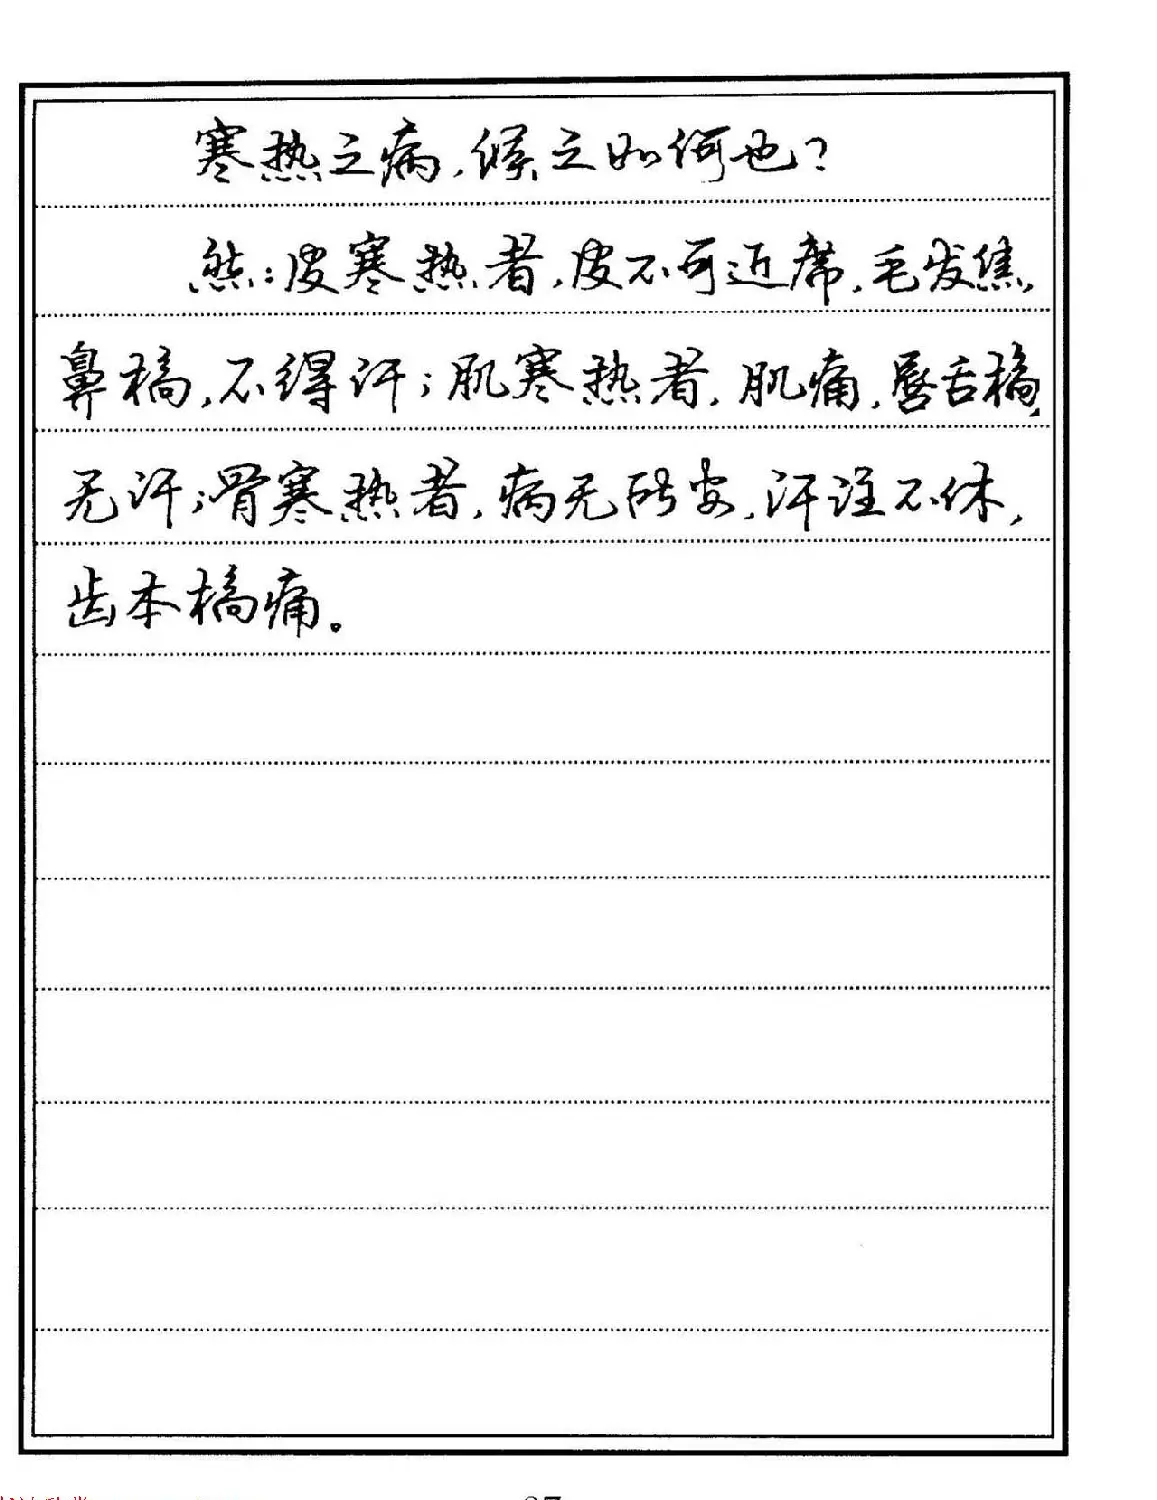 寒热之病,候之如何也?
然:皮寒热者,皮不可近席,毛发焦,
鼻槁,不得汗;肌寒热者,肌痛,唇舌槁,
无汗;骨寒热者,病无所安,汗注不休,
齿本槁痛。